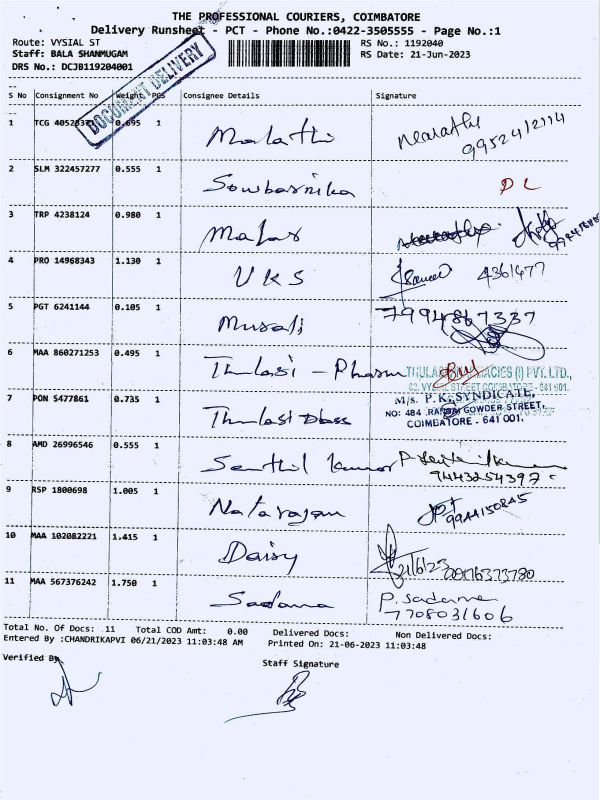 THE PROFESSIONAL COURIERS, COIMBATORE
Delivery Runsheet - PCT - Phone No.:0422-3505555 - Page No.:1
Route: VYSIAL ST
RS No.: 1192040
Staff: BALA SHANMUGAM
RS Date: 21-Jun-2023
DRS No.: DCJB119204001
DOCUMENT DELIVERY
S No Consignment No Weight PCS Consignee Details Signature
1 TCG 0.695 1 Malathi
9952412114
2 SLM 322457277 0.555 1 Sowbarnika DL
3 TRP 4238124 0.980 1
4 PRO 14968343 1.130 1 VKS 4361477
5 PGT 6241144 0.105 1 Murali 7994867337
6 MAA 860271253 0.495 1 Thulasi - Pharm
PVT. LTD.,
7 PON 5477861 0.735 1 Thulasi
M/s. P. K. SYNDICATE,
NO: 484 GOWDER STREET,
COIMBATORE - 641 001.
8 AMD 26996546 0.555 1 Senthil kumar P. Senthilkumar
9443254397
9 RSP 1800698 1.005 1 Natarajan
9944150845
10 MAA 102082221 1.415 1 Daisy
21/6/23
11 MAA 567376242 1.750 1 Sadana P. Sadana
7708031606
Total No. Of Docs: 11 Total COD Amt: 0.00 Delivered Docs: Non Delivered Docs:
Entered By :CHANDRIKAPVI 06/21/2023 11:03:48 AM Printed On: 21-06-2023 11:03:48
Verified By
Staff Signature